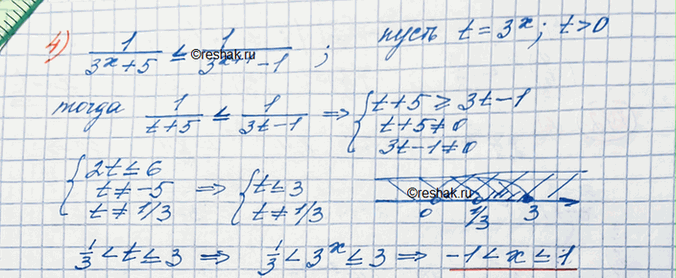 4) 1/(3^x+5) ≤ 1/(3^(x+1)-1) ; пусть t = 3^x; t>0
©reshak.ru
тогда 1/(t+5) ≤ 1/(3t-1) ⇒ { t+5 ≥ 3t-1
t+5≠0
3t-1≠0
{ 2t ≤ 6
t ≠ -5
t ≠ 1/3 ⇒ { t ≤ 3
t ≠ 1/3
©reshak.ru
0 1/3 3
1/3 < t ≤ 3 ⇒ 1/3 < 3^x ≤ 3 ⇒ -1 < x ≤ 1